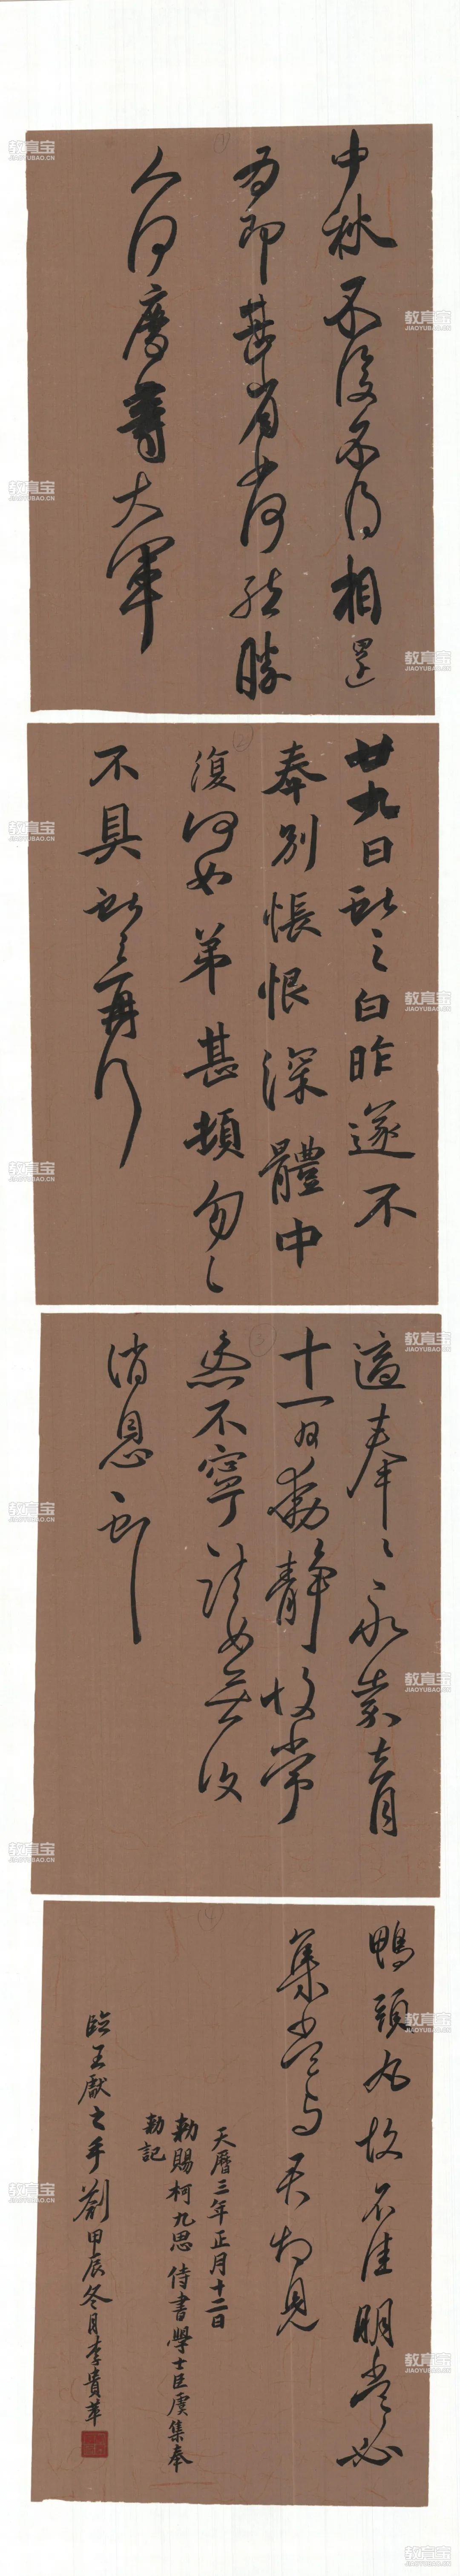 中秋不復不得相還
為即甚省如何然勝
人何慶等大軍
廿九日獻之白昨遂不
奉別悵恨深體中
復何如弟甚頓勿〻
不具獻之再行
適奉〻永嘉去月
十一日動靜故常
患不寧諸女無復
消息獻
鴨頭丸故不佳明當必
集當與君相見
天曆三年正月十二日
勑賜柯九思侍書學士臣虞集奉
勑記
臨王獻之手劄甲辰冬月李貴華
教育宝
JIAOYUBAO.CN